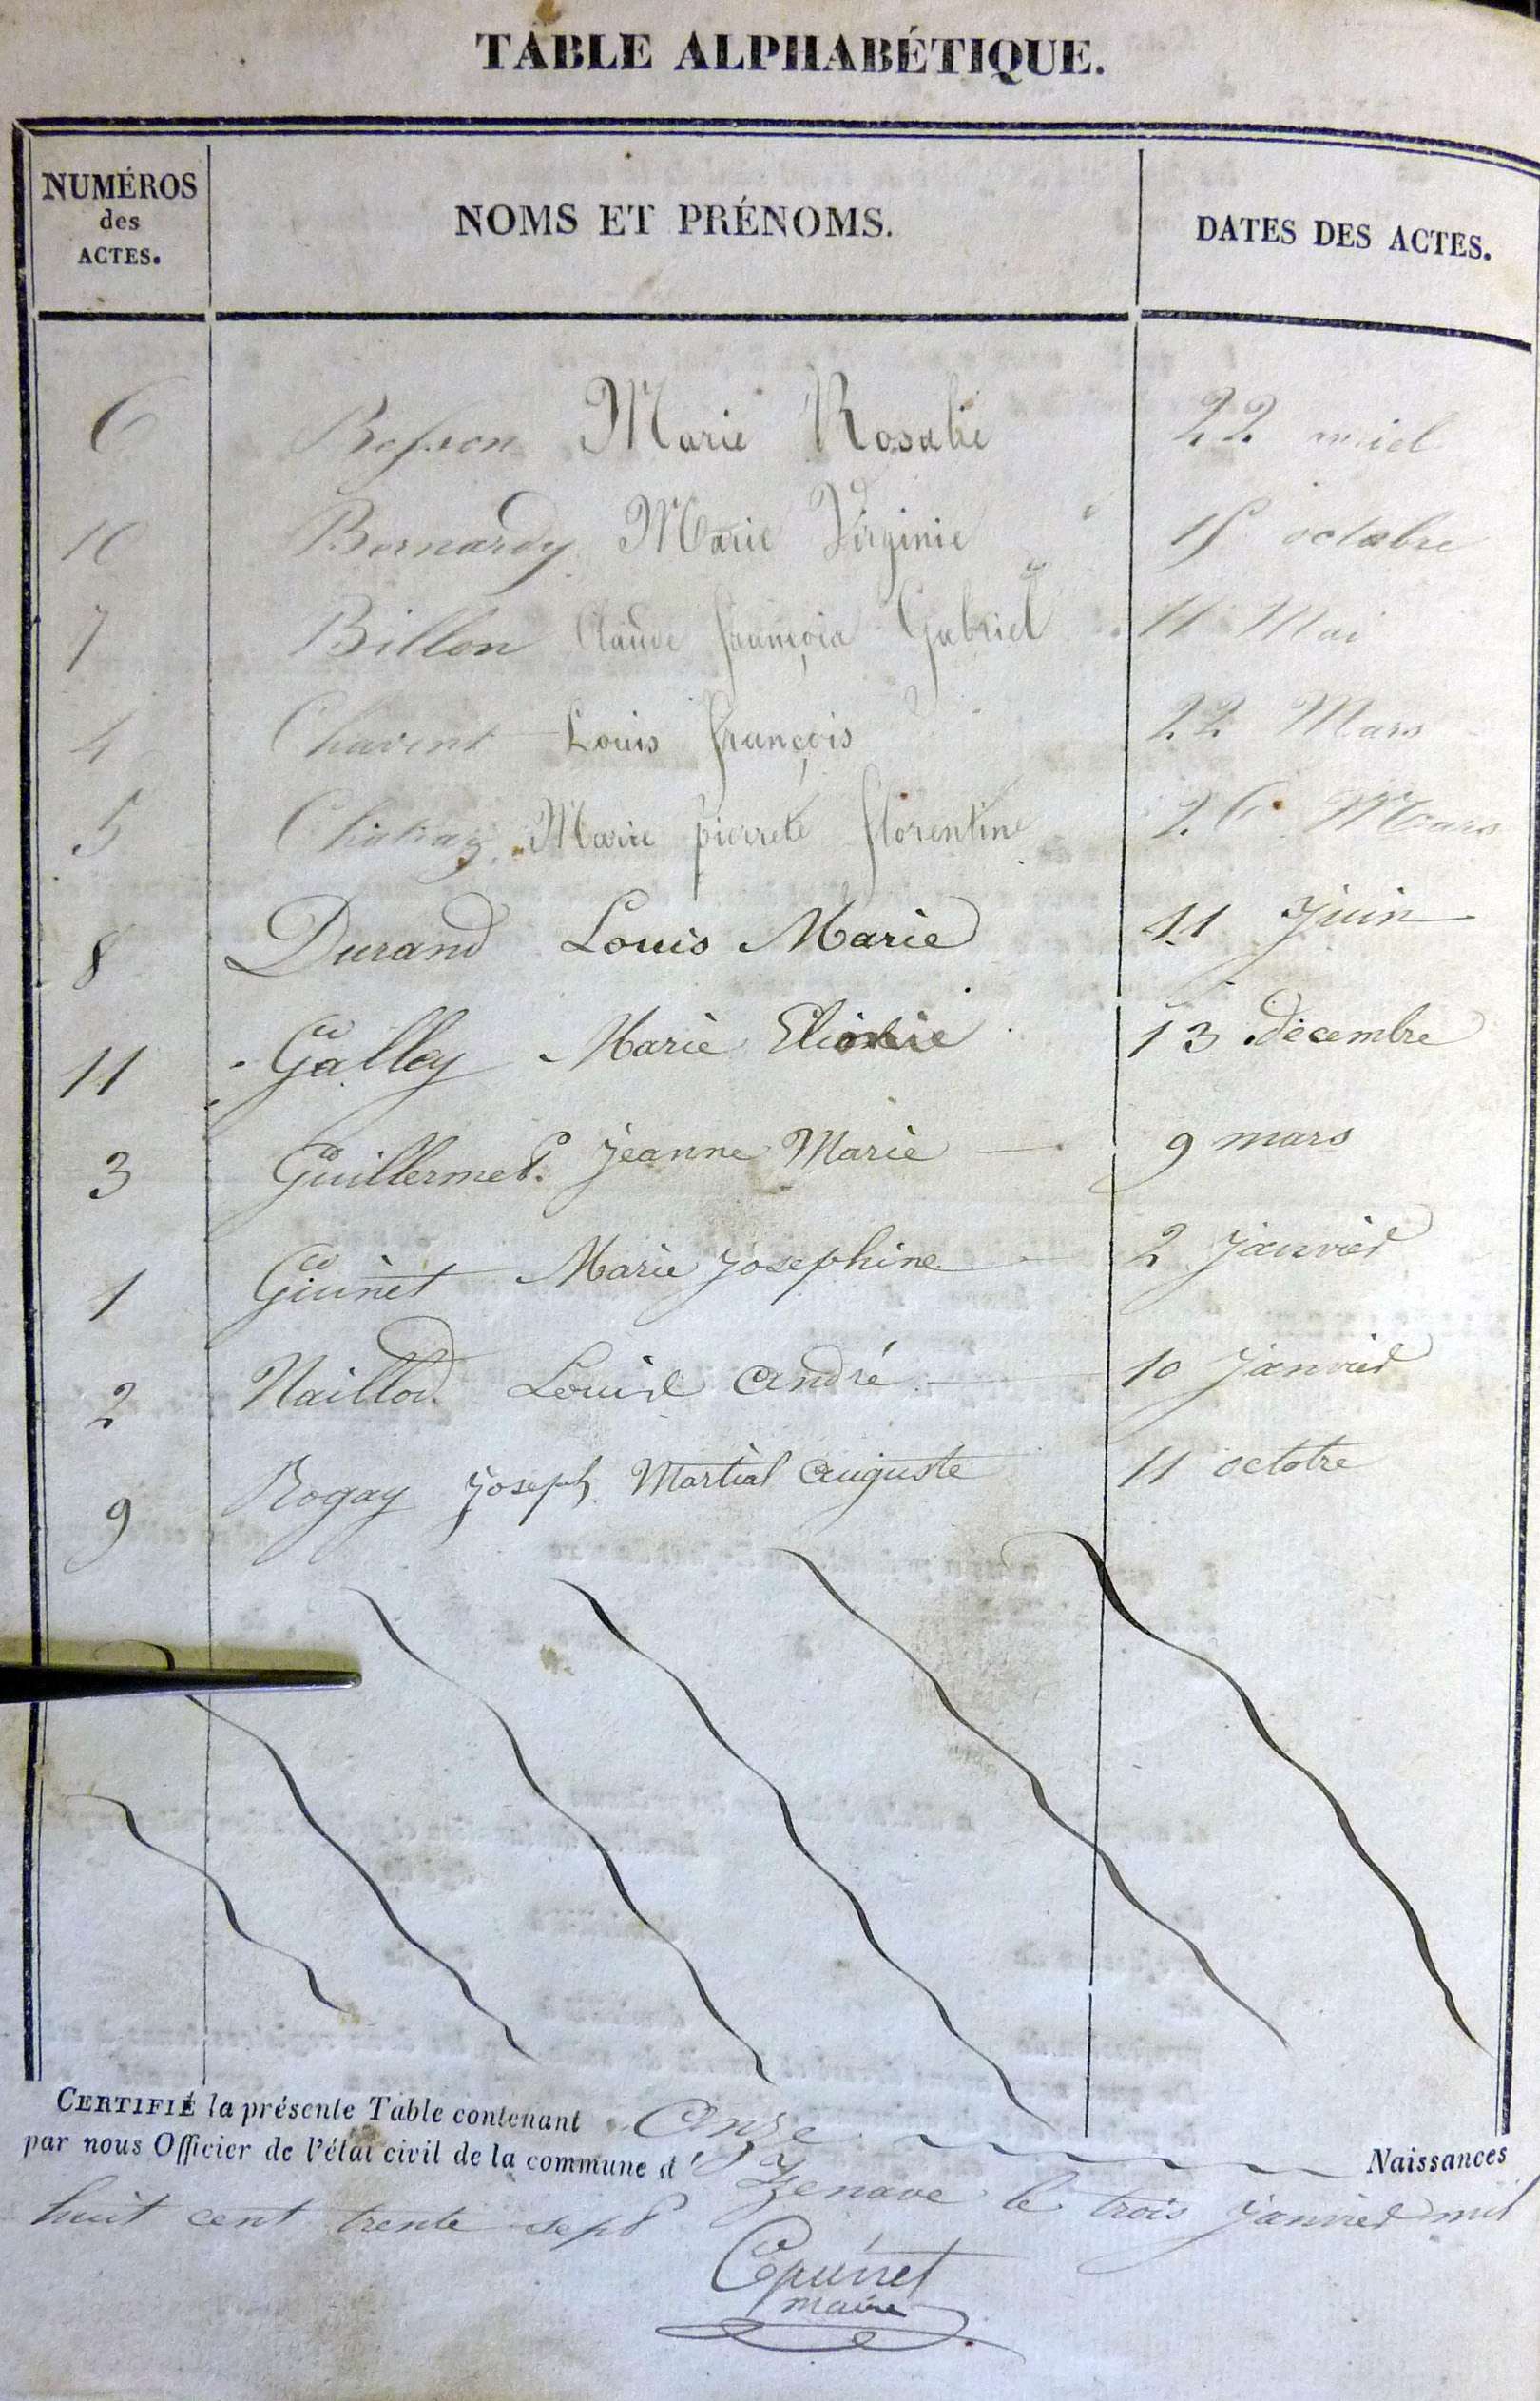 TABLE ALPHABÉTIQUE.
NUMÉROS des ACTES. NOMS ET PRÉNOMS. DATES DES ACTES.
6 Besson Marie Rosalie 22
10 Bernardy Marie Virginie 15 octobre
7 Billon Claude françois Gabriel 11 Mai
4 Chavent Louis françois 22 Mars
5 Marie pierrete florentine 26 Mars
8 Durand Louis Marie 11 juin
11 Galley Marie 13 décembre
3 Guillermet jeanne Marie 9 mars
1 Guinet Marie josephine 2 janvier
2 Maillod André 10 janvier
9 Rogay joseph Martial auguste 11 octobre
CERTIFIÉ la présente Table contenant onze Naissances
par nous Officier de l'état civil de la commune d' Izenave le trois janvier mil
huit cent trente sept
Guinet
maire